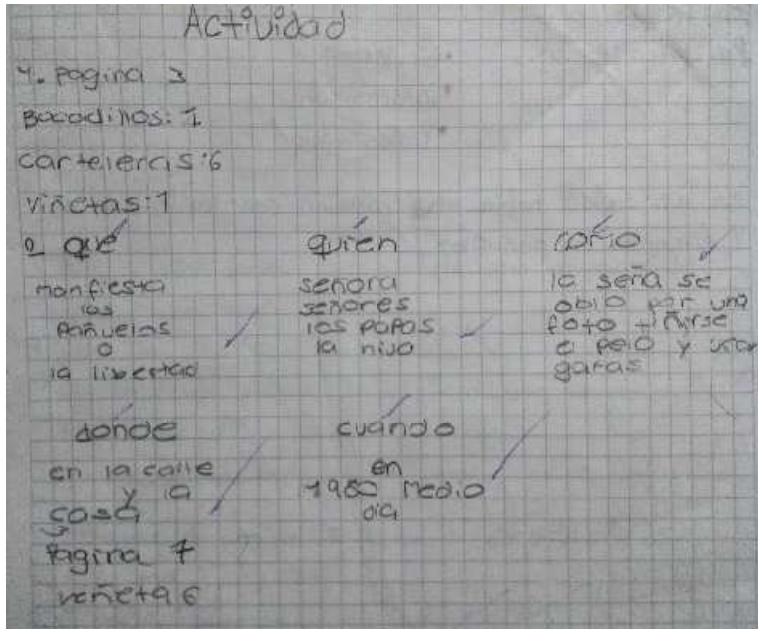 Actividad
1. pagina 3
Bocadillos: 1
carteleras: 6
viñetas: 1
2 qué
manfiesta
los
pañuelos
o
la libertad
quién
señora
señores
los papas
la hija
como
la seña se
obio por una
foto tiñirse
e pelo y usar
gafas
dónde
en la calle
y la
casa
Pagina 7
veñeta 6
cuándo
en
1980 Medio
dia